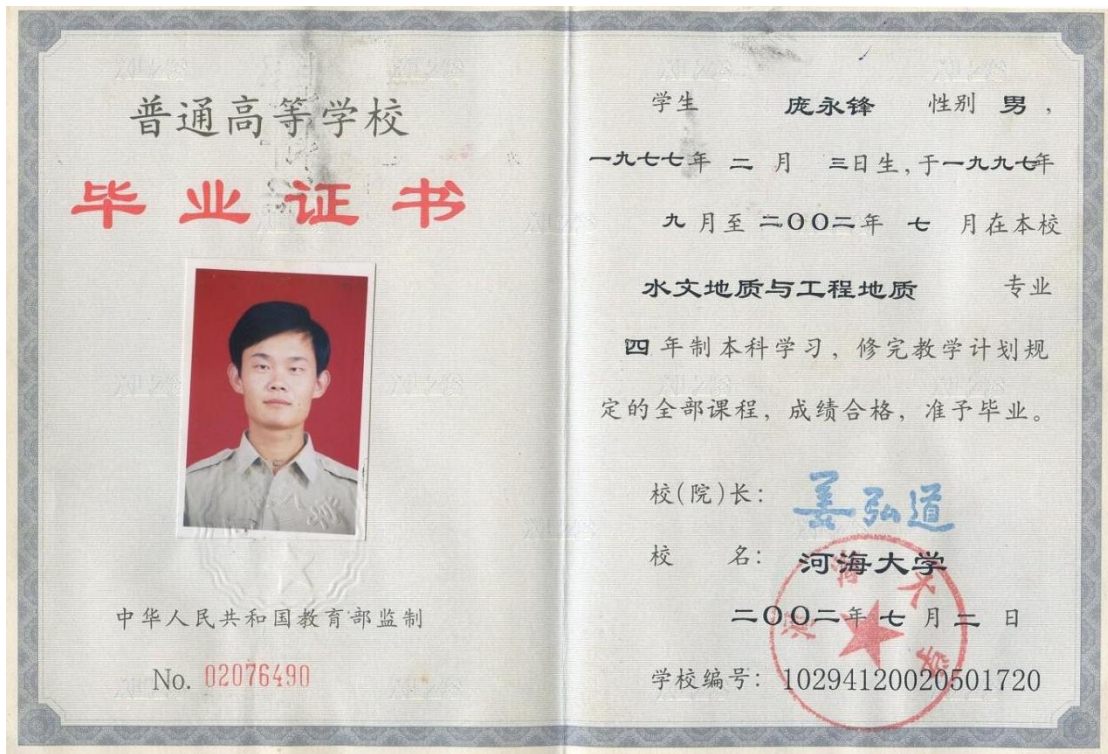 普通高等学校
毕业证书
中华人民共和国教育部监制
No. 02076490
学生 庞永锋 性别 男,
一九七七年 二 月 三日生,于一九九七年
九 月至 二〇〇二年 七 月在本校
水文地质与工程地质 专业
四 年制本科学习, 修完教学计划规
定的全部课程, 成绩合格, 准予毕业。
校(院)长: 姜弘道
校 名: 河海大学
二〇〇二年 七 月 二 日
学校编号: 10294120020501720
河海大学